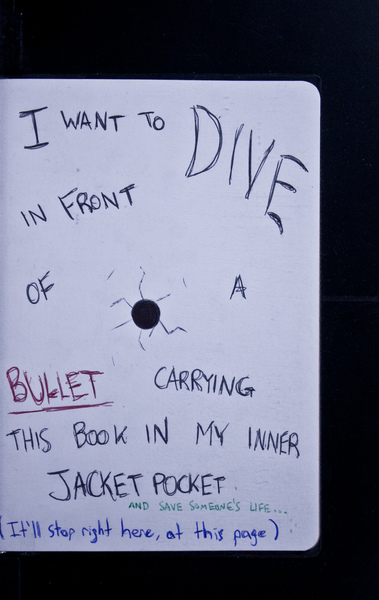 I WANT TO DIVE
IN FRONT
OF A
BULLET CARRYING
THIS BOOK IN MY INNER
JACKET POCKET
AND SAVE SOMEONE'S LIFE...
(It'll stop right here, at this page)